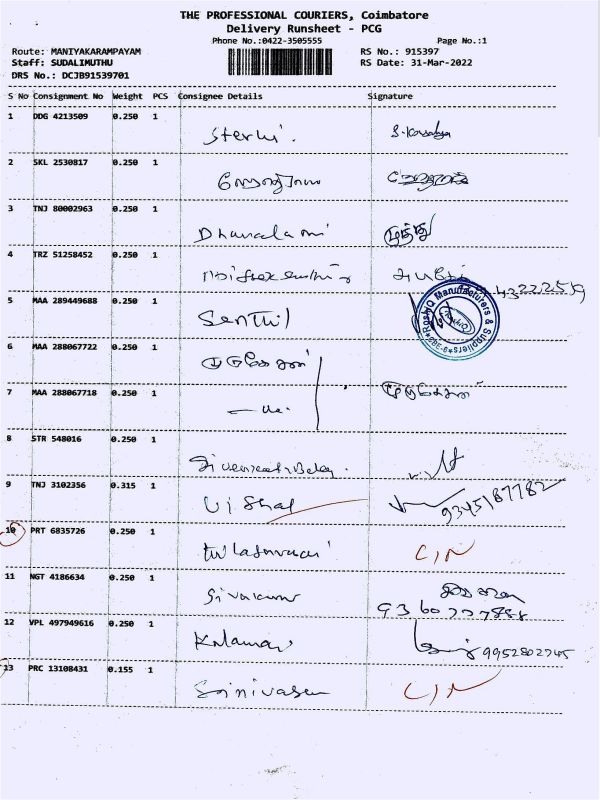 THE PROFESSIONAL COURIERS, Coimbatore
Delivery Runsheet - PCG
Phone No.:0422-3505555 Page No.:1
Route: MANIYAKARAMPAYAM RS No.: 915397
Staff: SUDALIMUTHU RS Date: 31-Mar-2022
DRS No.: DCJB91539701
S No Consignment No Weight PCS Consignee Details Signature
1 DDG 4213509 0.250 1
2 SKL 2530817 0.250 1
3 TNJ 80002963 0.250 1 முத்து
4 TRZ 51258452 0.250 1
5 MAA 289449688 0.250 1 Senthil
6 MAA 288067722 0.250 1 முருகேசன்
7 MAA 288067718 0.250 1 முருகேசன்
8 STR 548016 0.250 1
9 TNJ 3102356 0.315 1 Vishal 9345187782
10 PRT 6835726 0.250 1 C/N
11 NGT 4186634 0.250 1 Sivakumar
12 VPL 497949616 0.250 1 9952802745
13 PRC 13108431 0.155 1 Srinivasan C/N